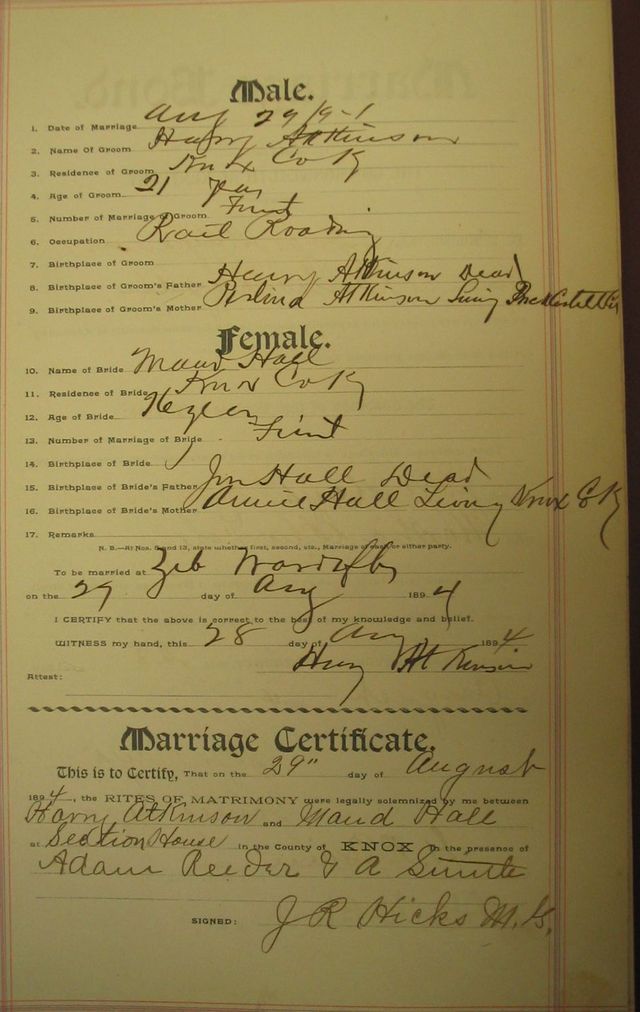 Male.
1. Date of Marriage Aug 29
2. Name Of Groom Harry Atkinson
3. Residence of Groom Knox Co Ky
4. Age of Groom 21
5. Number of Marriage of Groom First
6. Occupation Rail Roading
7. Birthplace of Groom
8. Birthplace of Groom's Father Harry Atkinson Dead
9. Birthplace of Groom's Mother Atkinson Living
Female.
10. Name of Bride Maud Hall
11. Residence of Bride Knox Co Ky
12. Age of Bride
13. Number of Marriage of Bride First
14. Birthplace of Bride
15. Birthplace of Bride's Father Hall Dead
16. Birthplace of Bride's Mother Annie Hall Living Knox Co Ky
17. Remarks
N. B.—At Nos. 5 and 13, state whether first, second, etc., Marriage of each or either party.
To be married at Zeb
on the 29 day of Aug 1894
I CERTIFY that the above is correct to the best of my knowledge and belief.
WITNESS my hand, this 28 day of Aug 1894
Harry Atkinson
Attest:
Marriage Certificate.
This is to Certify, That on the 29" day of August
1894, the RITES OF MATRIMONY were legally solemnized by me between
Harry Atkinson and Maud Hall
at Section House in the County of KNOX in the presence of
Adam Reeder & A
SIGNED: J R Hicks M. G.